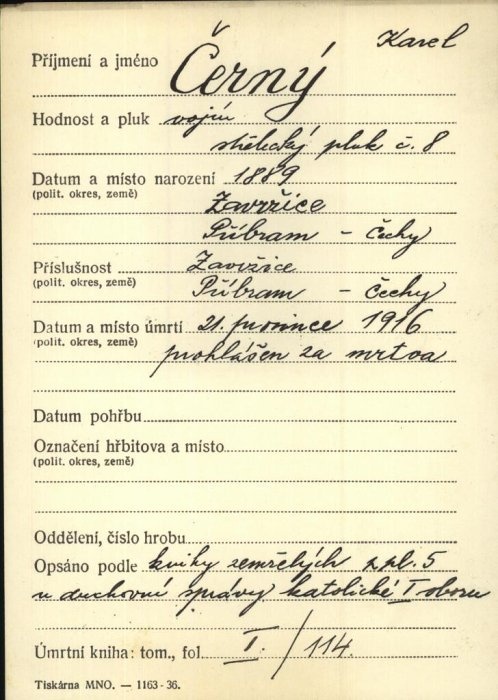 Karel
Příjmení a jméno Černý
Hodnost a pluk vojín
střelecký pluk č. 8
Datum a místo narození 1889
(polit. okres, země) Zavržice
Příbram - Čechy
Příslušnost Zavržice
(polit. okres, země) Příbram - Čechy
Datum a místo úmrtí 21. prosince 1916
(polit. okres, země) prohlášen za mrtva
Datum pohřbu
Označení hřbitova a místo
(polit. okres, země)
Oddělení, číslo hrobu
Opsáno podle knihy zemřelých zpl. 5
u duchovní správy katolické I oboru
Úmrtní kniha: tom., fol. I. / 114.
Tiskárna MNO. — 1163-36.